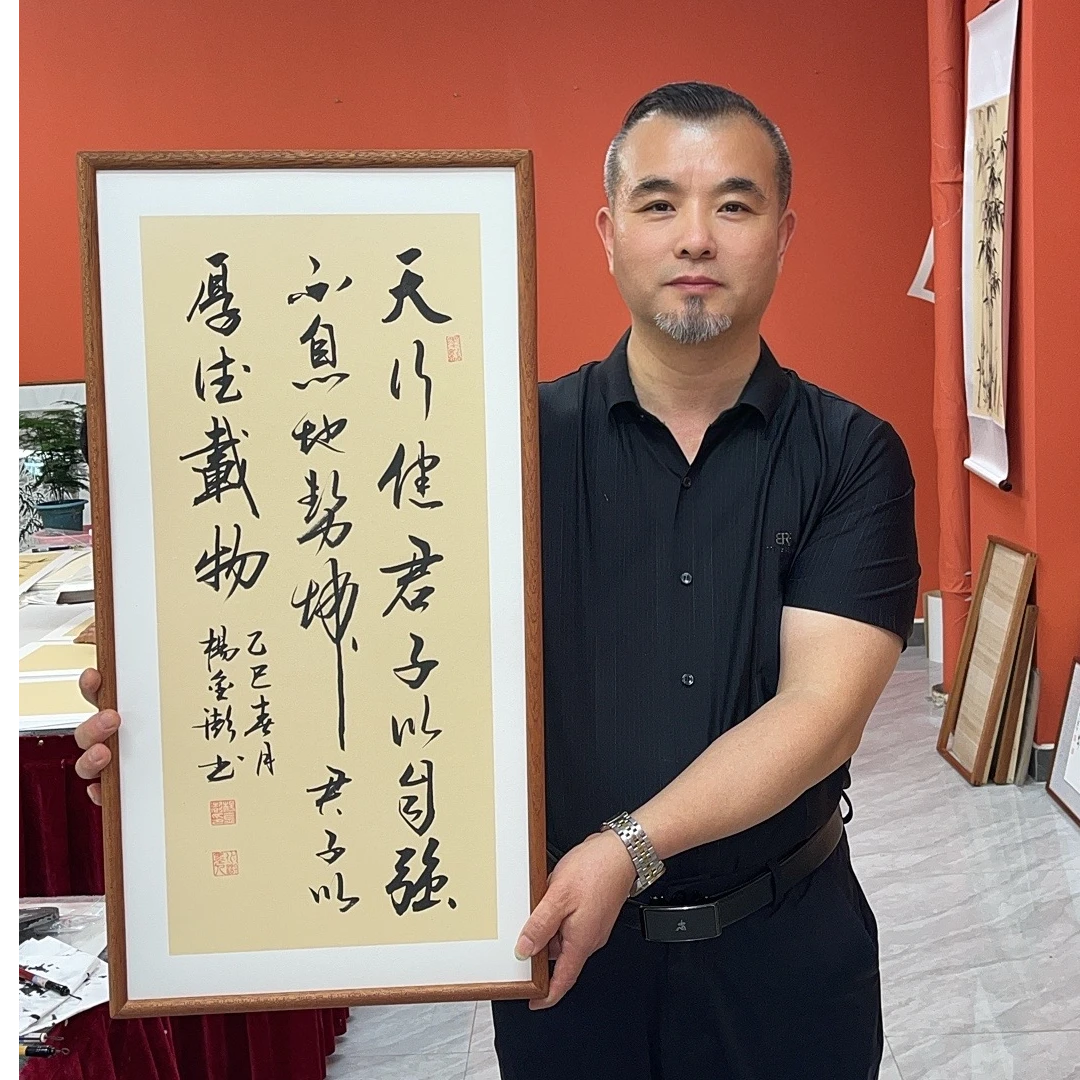 天行健君子以自強
不息地勢坤君子以
厚德載物
乙巳春月
楊金澂书